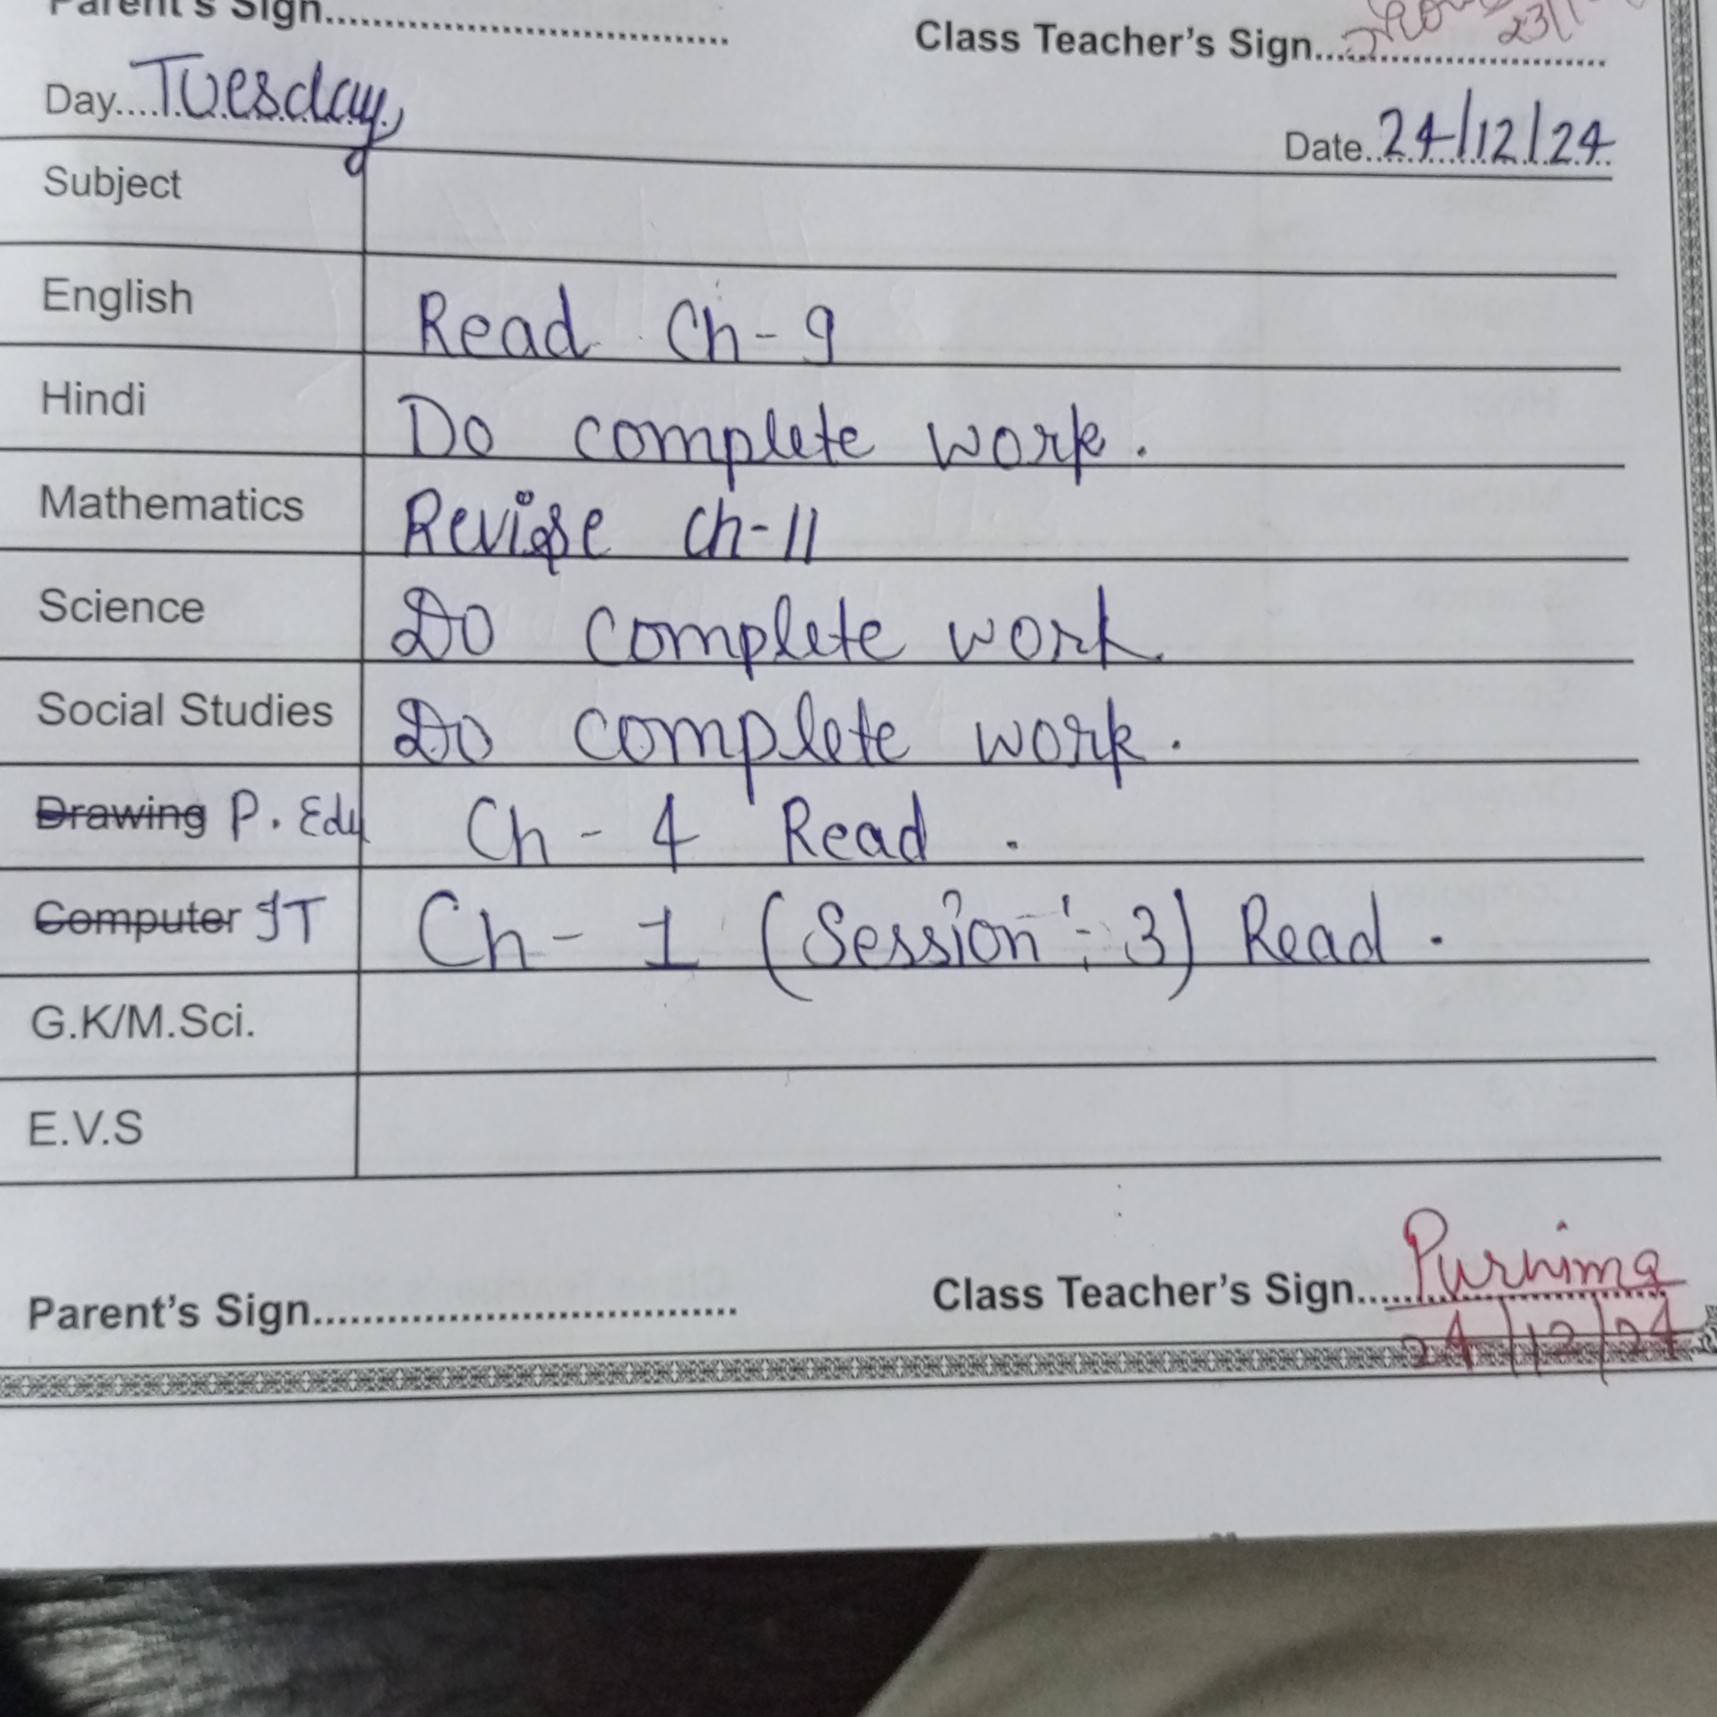 Parent's Sign..............................
Class Teacher's Sign.............................. 23/1
Day....Tuesday
Date..24/12/24
Subject
English Read Ch-9
Hindi Do complete work.
Mathematics Revise Ch-11
Science Do complete work
Social Studies Do complete work.
Drawing P. Edu Ch - 4 Read .
Computer IT Ch - 1 (Session :- 3) Read .
G.K/M.Sci.
E.V.S
Parent's Sign..............................
Class Teacher's Sign..... Purnima
24/12/24